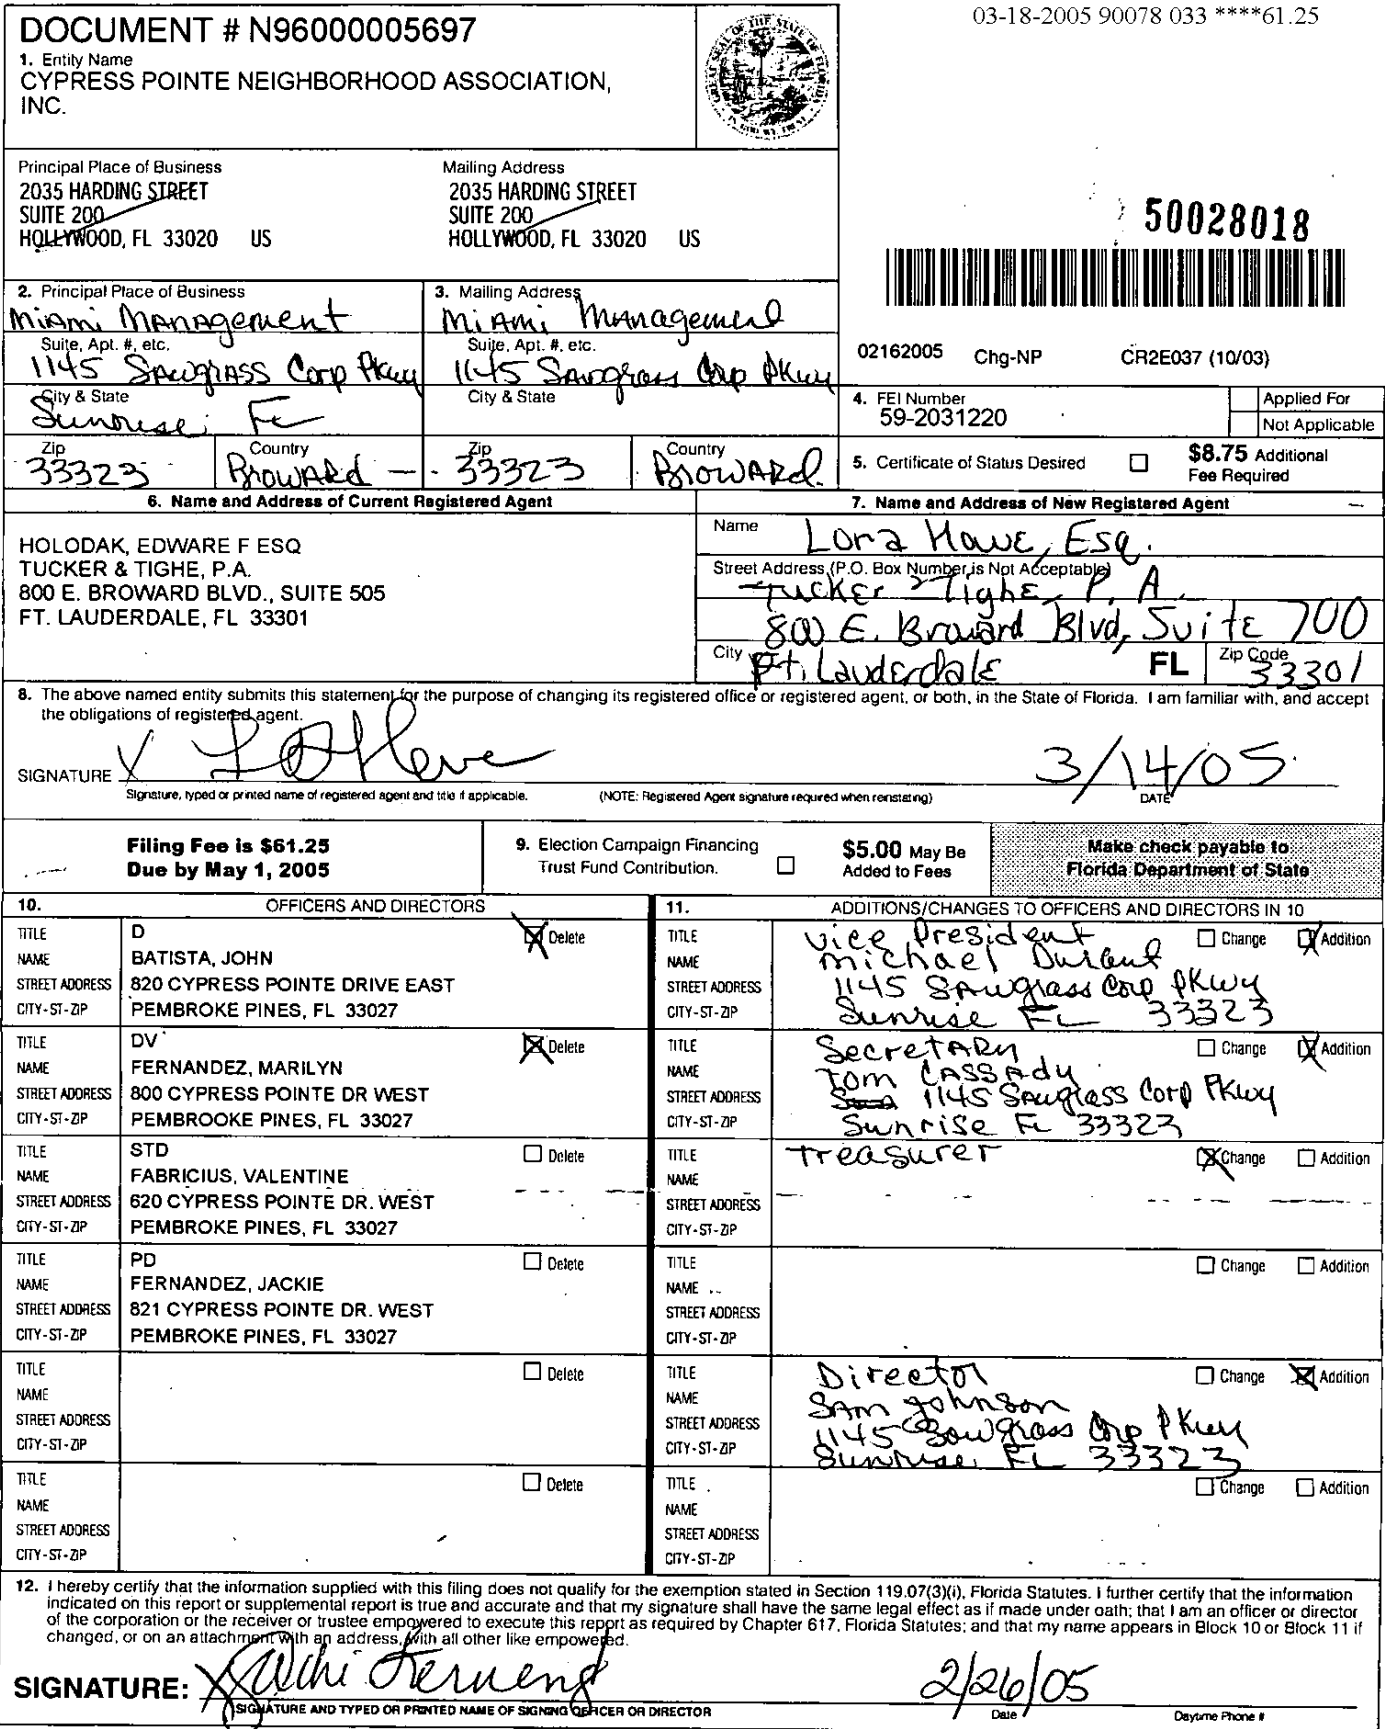 03-18-2005 90078 033 ****61.25
DOCUMENT # N96000005697
1. Entity Name
CYPRESS POINTE NEIGHBORHOOD ASSOCIATION,
INC.
Principal Place of Business
2035 HARDING STREET
SUITE 200
HOLLYWOOD, FL 33020 US
Mailing Address
2035 HARDING STREET
SUITE 200
HOLLYWOOD, FL 33020 US
50028018
2. Principal Place of Business
Miami Management
Suite, Apt. #, etc.
1145 Sawgrass Corp Pkwy
City & State
Sunrise, FL
Zip
33323
Country
Broward
3. Mailing Address
Miami Management
Suite, Apt. #, etc.
1145 Sawgrass Corp Pkwy
City & State
Zip
33323
Country
Broward
02162005 Chg-NP CR2E037 (10/03)
4. FEI Number
59-2031220
Applied For
Not Applicable
5. Certificate of Status Desired
$8.75 Additional
Fee Required
6. Name and Address of Current Registered Agent
HOLODAK, EDWARE F ESQ
TUCKER & TIGHE, P.A.
800 E. BROWARD BLVD., SUITE 505
FT. LAUDERDALE, FL 33301
7. Name and Address of New Registered Agent
Name
Lora Howe, Esq.
Street Address (P.O. Box Number is Not Acceptable)
Tucker & Tighe, P.A.
800 E. Broward Blvd, Suite 700
City
Ft. Lauderdale
FL
Zip Code
33301
8. The above named entity submits this statement for the purpose of changing its registered office or registered agent, or both, in the State of Florida. I am familiar with, and accept
the obligations of registered agent.
SIGNATURE X
3/14/05
Signature, typed or printed name of registered agent and title if applicable.
(NOTE: Registered Agent signature required when reinstating)
DATE
Filing Fee is $61.25
Due by May 1, 2005
9. Election Campaign Financing
Trust Fund Contribution.
$5.00 May Be
Added to Fees
Make check payable to
Florida Department of State
10. OFFICERS AND DIRECTORS
TITLE D Delete
NAME BATISTA, JOHN
STREET ADDRESS 820 CYPRESS POINTE DRIVE EAST
CITY-ST-ZIP PEMBROKE PINES, FL 33027
TITLE DV Delete
NAME FERNANDEZ, MARILYN
STREET ADDRESS 800 CYPRESS POINTE DR WEST
CITY-ST-ZIP PEMBROOKE PINES, FL 33027
TITLE STD Delete
NAME FABRICIUS, VALENTINE
STREET ADDRESS 620 CYPRESS POINTE DR. WEST
CITY-ST-ZIP PEMBROKE PINES, FL 33027
TITLE PD Delete
NAME FERNANDEZ, JACKIE
STREET ADDRESS 821 CYPRESS POINTE DR. WEST
CITY-ST-ZIP PEMBROKE PINES, FL 33027
TITLE Delete
NAME
STREET ADDRESS
CITY-ST-ZIP
TITLE Delete
NAME
STREET ADDRESS
CITY-ST-ZIP
11. ADDITIONS/CHANGES TO OFFICERS AND DIRECTORS IN 10
TITLE Vice President Change Addition
NAME Michael Durant
STREET ADDRESS 1145 Sawgrass Corp Pkwy
CITY-ST-ZIP Sunrise FL 33323
TITLE Secretary Change Addition
NAME Tom Cassady
STREET ADDRESS 1145 Sawgrass Corp Pkwy
CITY-ST-ZIP Sunrise FL 33323
TITLE Treasurer Change Addition
NAME
STREET ADDRESS
CITY-ST-ZIP
TITLE Change Addition
NAME
STREET ADDRESS
CITY-ST-ZIP
TITLE Director Change Addition
NAME Sam Johnson
STREET ADDRESS 1145 Sawgrass Corp Pkwy
CITY-ST-ZIP Sunrise, FL 33323
TITLE Change Addition
NAME
STREET ADDRESS
CITY-ST-ZIP
12. I hereby certify that the information supplied with this filing does not qualify for the exemption stated in Section 119.07(3)(i), Florida Statutes. I further certify that the information
indicated on this report or supplemental report is true and accurate and that my signature shall have the same legal effect as if made under oath; that I am an officer or director
of the corporation or the receiver or trustee empowered to execute this report as required by Chapter 617, Florida Statutes; and that my name appears in Block 10 or Block 11 if
changed, or on an attachment with an address, with all other like empowered.
SIGNATURE: X
2/26/05
SIGNATURE AND TYPED OR PRINTED NAME OF SIGNING OFFICER OR DIRECTOR
Date
Daytime Phone #